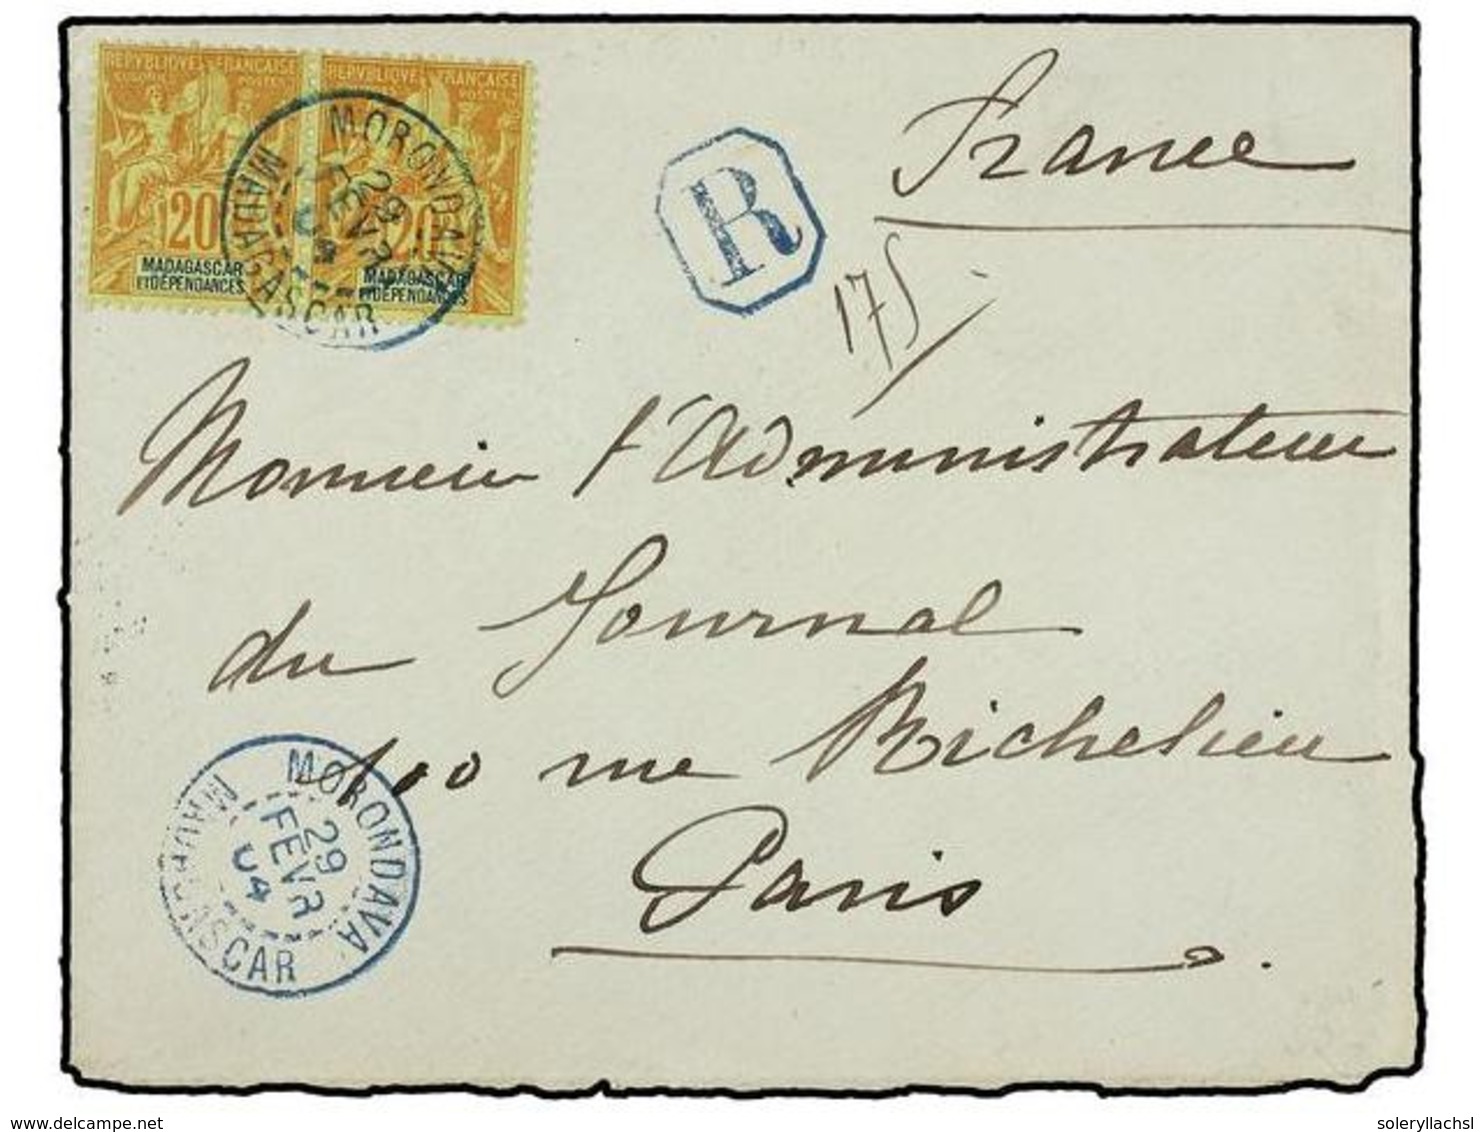 REPVBLIQVE FRANÇAISE
COLONIES POSTES
20
MADAGASCAR
ET DÉPENDANCES
REPVBLIQVE FRANÇAISE
POSTES
20
MADAGASCAR
ET DÉPENDANCES
MORONDAVA
29
FEVR
04
MADAGASCAR
R
175
France
Monsieur l'Administrateur
du Journal
100 rue Richelieu
Paris
MORONDAVA
29
FEVR
04
MADAGASCAR
www.delcampe.net
soleryllachsl